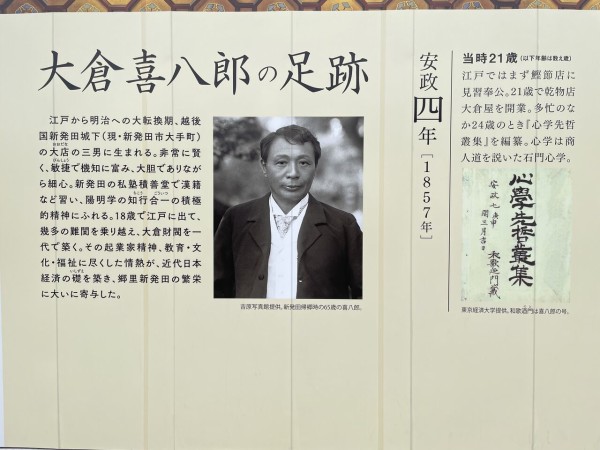 大倉喜八郎の足跡
江戸から明治への大転換期、越後
国新発田城下（現・新発田市大手町）
の大店の三男に生まれる。非常に賢
く、敏捷で機知に富み、大胆でありなが
ら細心。新発田の私塾積善堂で漢籍
など習い、陽明学の知行合一の積極
的精神にふれる。18歳で江戸に出て、
幾多の難関を乗り越え、大倉財閥を一
代で築く。その起業家精神、教育・文
化・福祉に尽くした情熱が、近代日本
経済の礎を築き、郷里新発田の繁栄
に大いに寄与した。
吉原写真館提供。新発田帰郷時の65歳の喜八郎。
安政四年［1857年］
当時21歳（以下年齢は数え歳）
江戸ではまず鰹節店に
見習奉公。21歳で乾物店
大倉屋を開業。多忙のな
か24歳のとき『心学先哲
叢集』を編纂。心学は商
人道を説いた石門心学。
心學先哲叢集
安政七庚申
閏三月吉日
和歌廼門蔵
東京経済大学提供。和歌廼門は喜八郎の号。